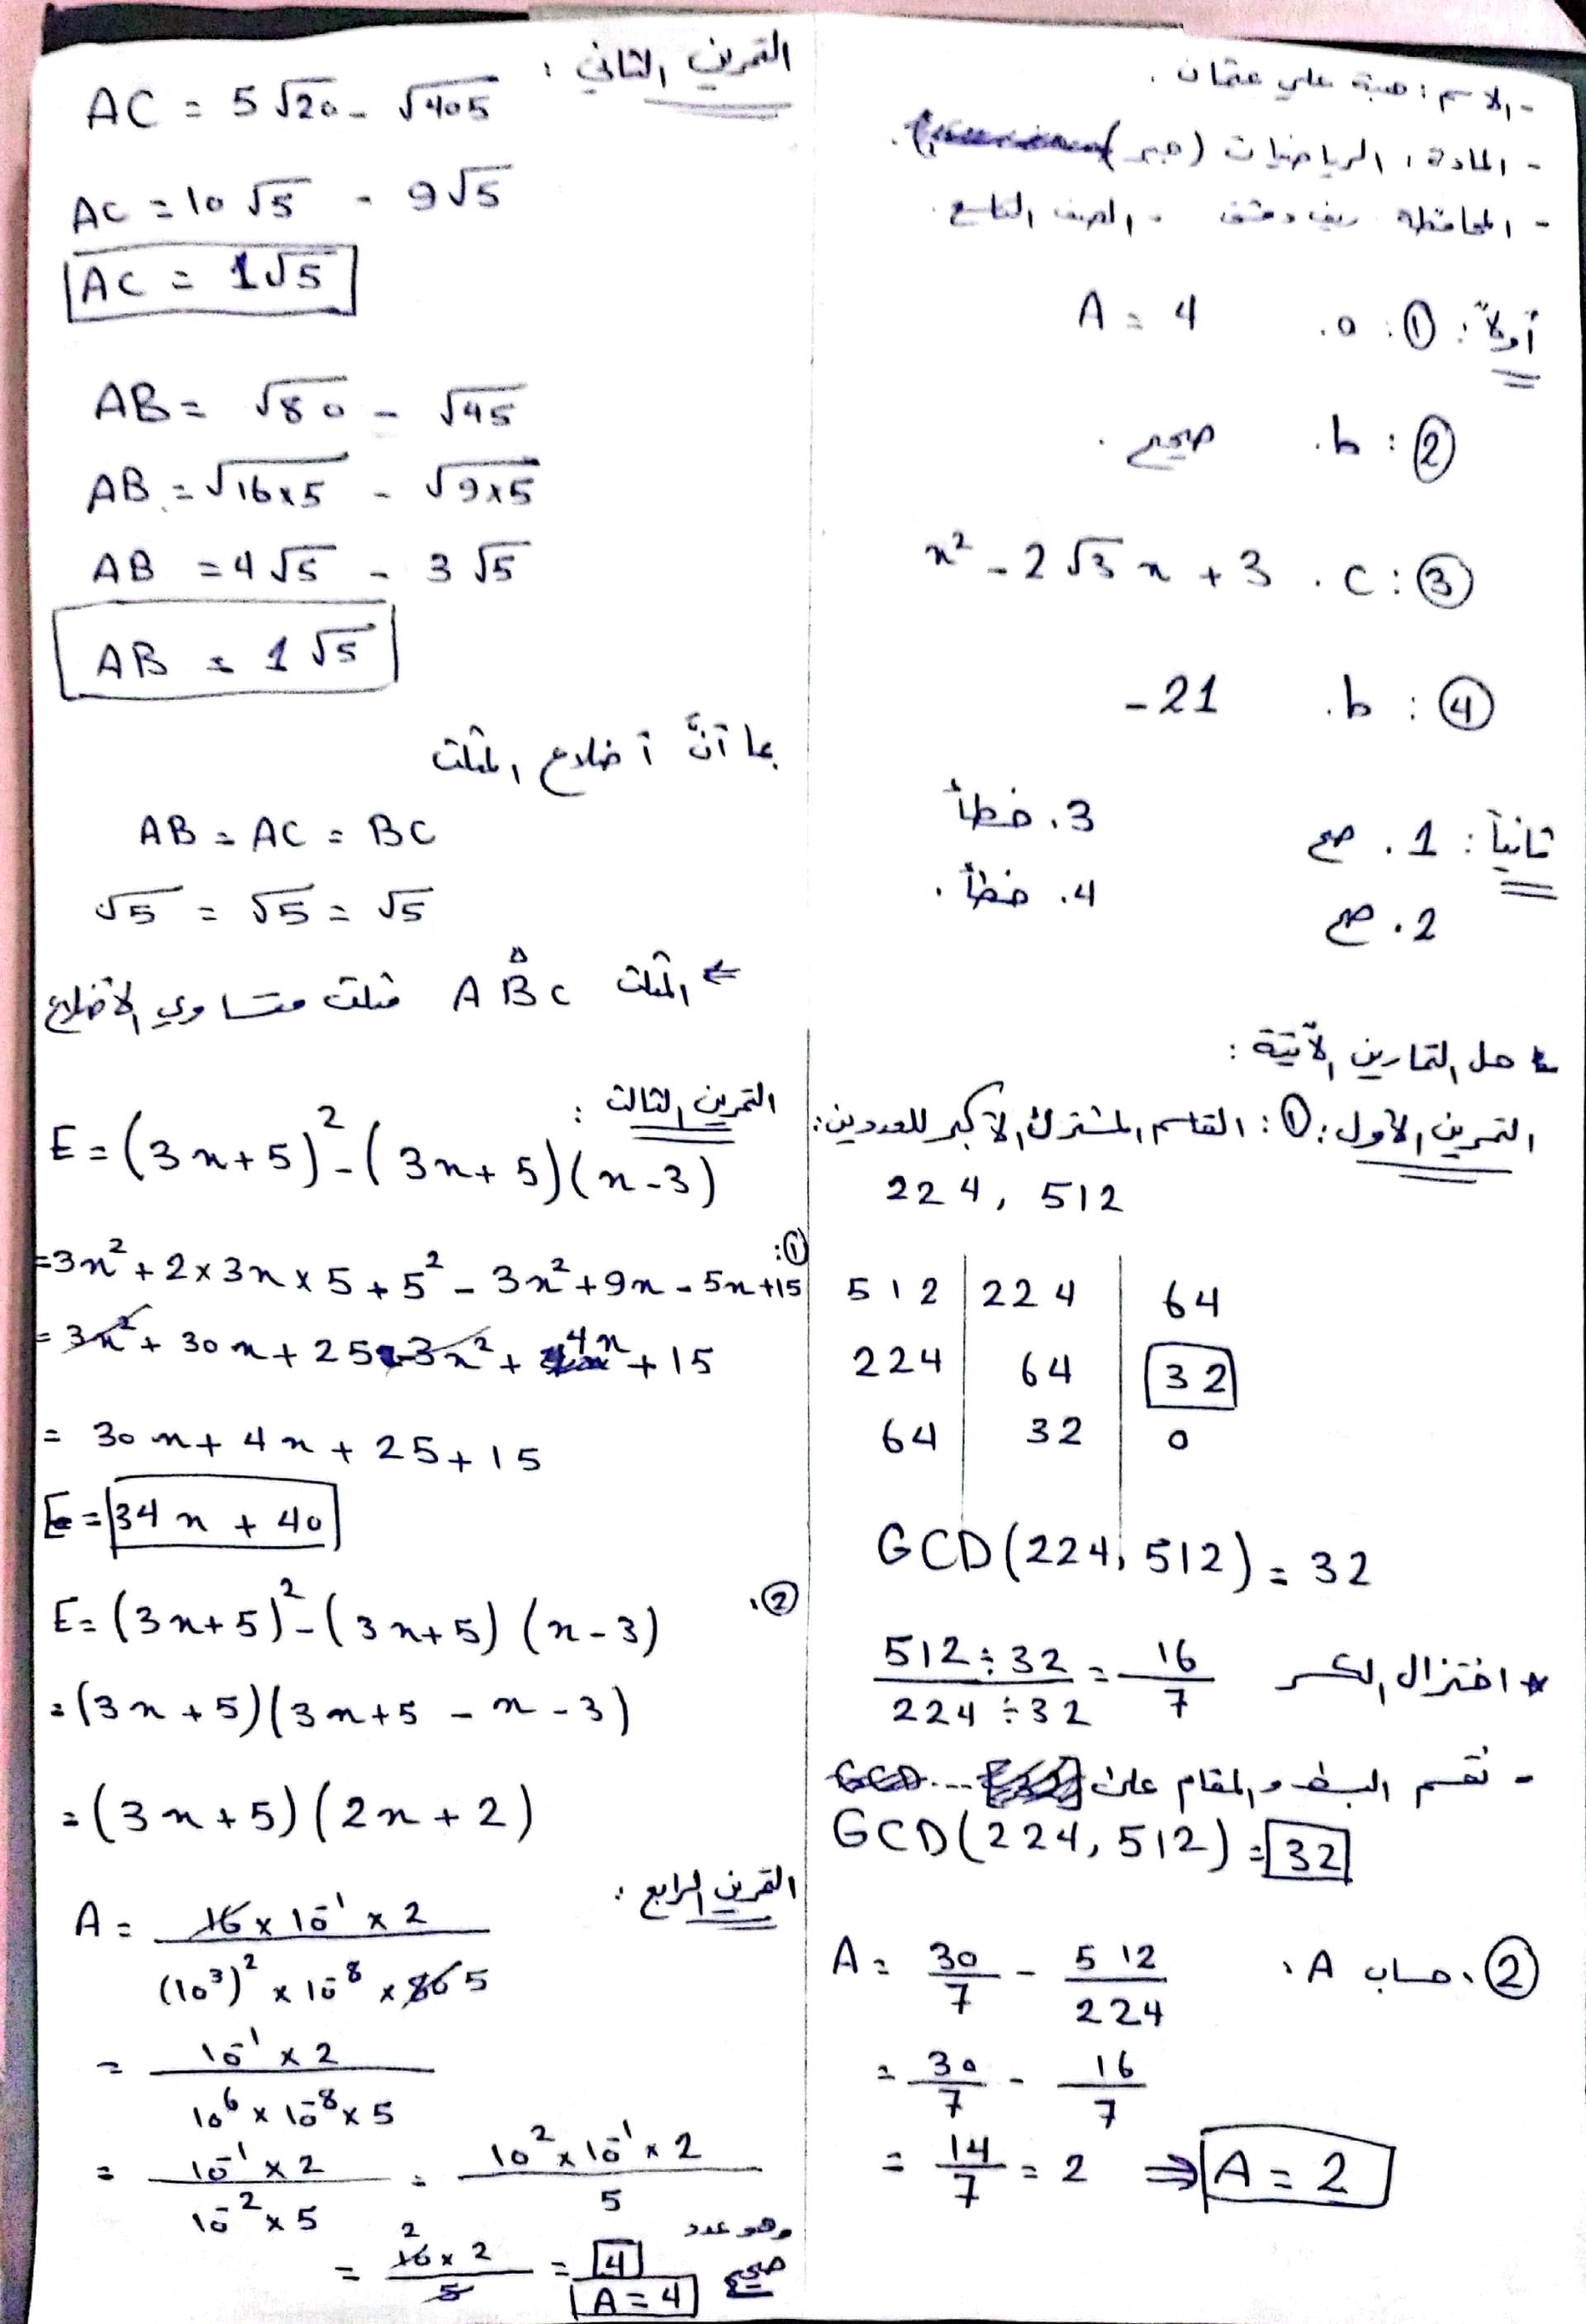 - الاسم: هبة علي عثمان.
- المادة: الرياضيات (جبر).
- المحافظة ريف دمشق - الصف التاسع.
أولاً: ①: a. A = 4
②: b. صحيح.
③: c. x² - 2√3 x + 3
④: b. -21
ثانياً: 1. صح
2. صح
3. خطأ
4. خطأ.
* حل التمارين الآتية:
التمرين الأول: ①: القاسم المشترك الأكبر للعددين:
224, 512
512 | 224 | 64
224 | 64 | 32
64 | 32 | 0
GCD(224, 512) = 32
* اختزال الكسر 512 ÷ 32 / 224 ÷ 32 = 16/7
- نقسم البسط والمقام على
GCD(224, 512) = 32
②. حساب A:
A = 30/7 - 512/224
= 30/7 - 16/7
= 14/7 = 2 ⇒ A = 2
التمرين الثاني:
AC = 5√20 - √405
AC = 10√5 - 9√5
AC = 1√5
AB = √80 - √45
AB = √16×5 - √9×5
AB = 4√5 - 3√5
AB = 1√5
بما أنَّ أضلاع المثلث
AB = AC = BC
√5 = √5 = √5
⇐ المثلث ABC مثلث متساوي الأضلاع
التمرين الثالث:
E = (3x+5)² - (3x+5)(x-3)
①:
=3x² + 2×3x×5 + 5² - 3x² + 9x - 5x + 15
= 3x² + 30x + 25 - 3x² + 4x + 15
= 30x + 4x + 25 + 15
E = 34x + 40
②.
E = (3x+5)² - (3x+5)(x-3)
= (3x+5)(3x+5 - x - 3)
= (3x+5)(2x+2)
التمرين الرابع:
A = 16 × 10⁻¹ × 2 / (10³)² × 10⁻⁸ × 80 5
= 10⁻¹ × 2 / 10⁶ × 10⁻⁸ × 5
= 10⁻¹ × 2 / 10⁻² × 5 = 10² × 10⁻¹ × 2 / 5
= 10 2 × 2 / 5 = 4 وهو عدد
A = 4 صحيح